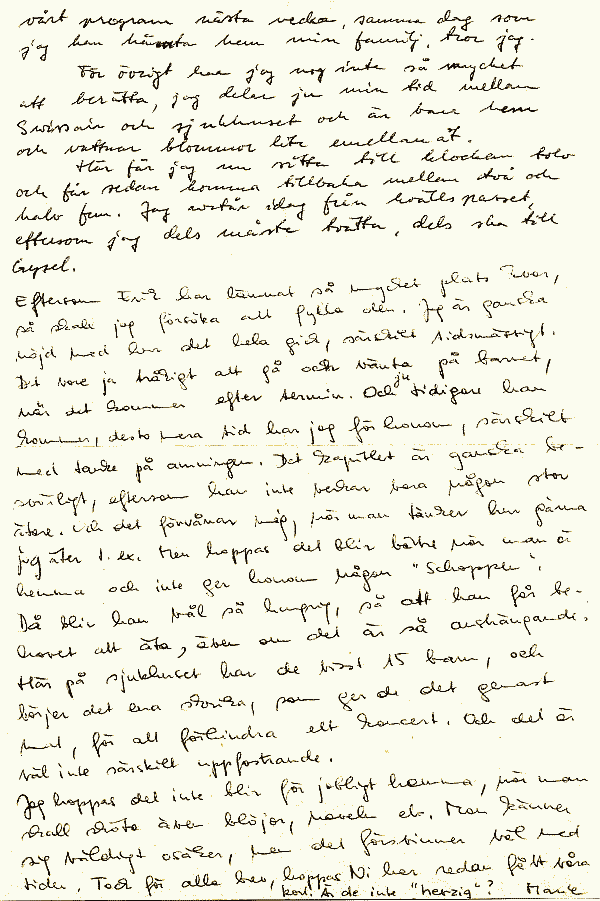 vårt program nästa vecka, samma dag som
jag kan hämta hem min familj, tror jag.
För övrigt har jag nog inte så mycket
att berätta, jag delar ju min tid mellan
Swissair och sjukhuset och är bara hem
och vattnar blommor lite emellanåt.
Här får jag nu sitta till klockan tolv
och får sedan komma tillbaka mellan två och
halv fem. Jag avstår idag från kvällspasset,
eftersom jag dels måste tvätta, dels ska till
Gysel.
Eftersom Erik har lämnat så mycket plats kvar,
så skall jag försöka att fylla den. Jag är ganska
nöjd med hur det hela gick, särskilt tidsmässigt.
Det vore ju tråkigt att gå och vänta på barnet,
när det kommer efter termin. Och ju tidigare han
kommer, desto mera tid har jag för honom, särskilt
med tanke på amningen. Det kapitlet är ganska be-
svärligt, eftersom han inte verkar vara någon stor
ätare. Och det förvånar mig, när man tänker hur gärna
jag äter t. ex. Men hoppas det blir bättre när man är
hemma och inte ger honom någon "Schoppen".
Då blir han väl så hungrig, så att han får be-
hovet att äta, även om det är så ansträngande.
Här på sjukhuset har de visst 15 barn, och
börjar det ena skrika, som ger de det genast
mat, för att förhindra ett koncert. Och det är
väl inte särskilt uppfostrande.
Jag hoppas det inte blir för jobbigt hemma, när man
skall sköta även blöjor, naveln etc. Man känner
sig väldigt osäker, men det försvinner väl med
tiden. Tack för alla brev, hoppas Ni har redan fått våra
kort. Är de inte "herzig"?